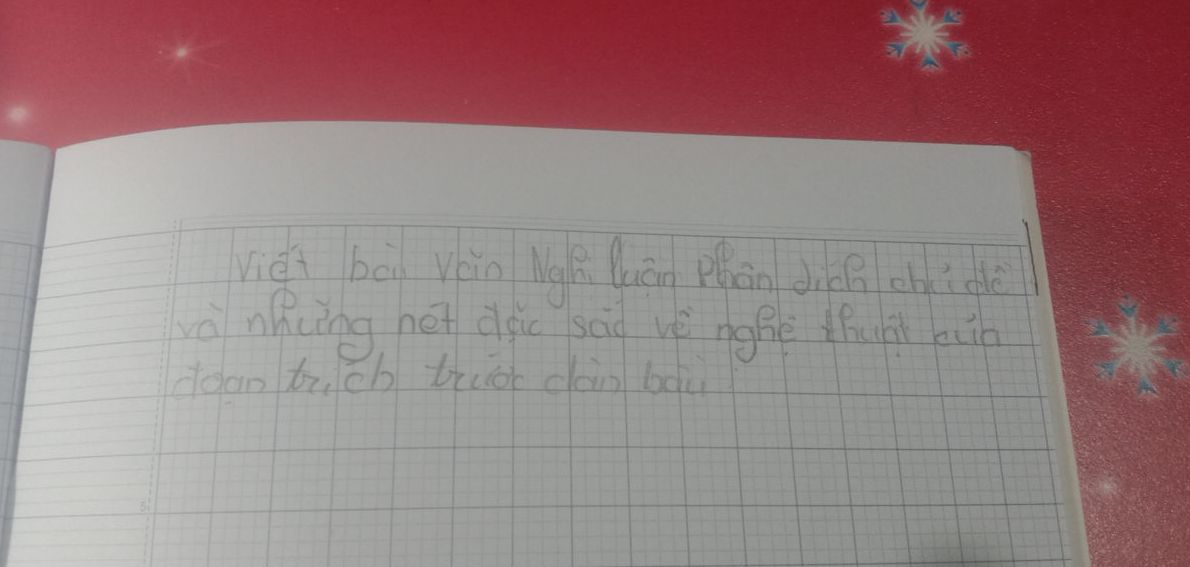 Viết bài văn Nghị luận Phân dích chủ đề
và những nét đặc sắc về nghệ thuật của
đoạn trích trước dàn bầu